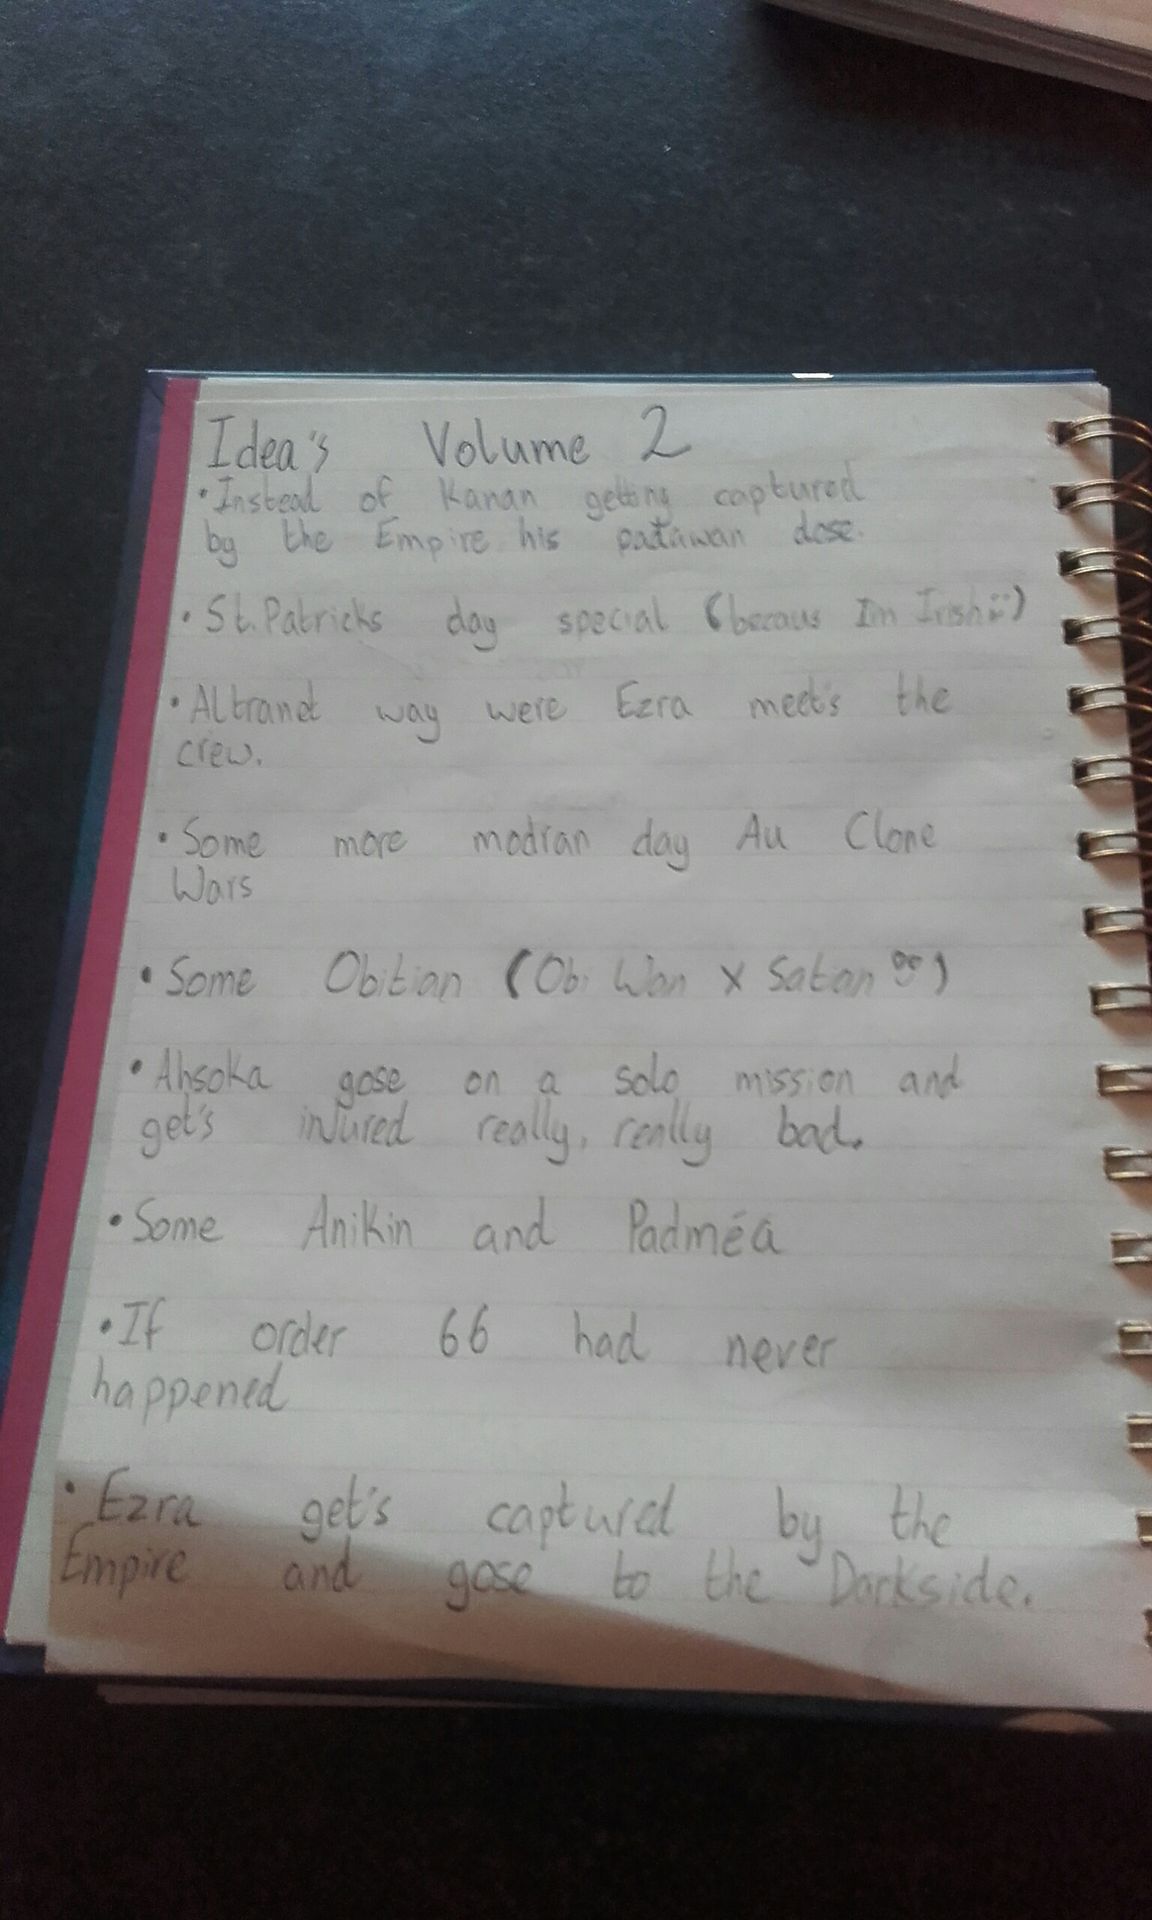 Idea's Volume 2
• Instead of Kanan getting captured
by the Empire his patawan dose.
• St. Patricks day special (becaus Im Irish :))
• Altranet way were Ezra meet's the
crew.
• Some more modran day Au Clone
Wars
• Some Obitian (Obi Wan X Satan)
• Ahsoka gose on a solo mission and
get's injured really, really bad.
• Some Anikin and Padméa
• If order 66 had never
happened
• Ezra get's captured by the
Empire and gose to the Darkside.